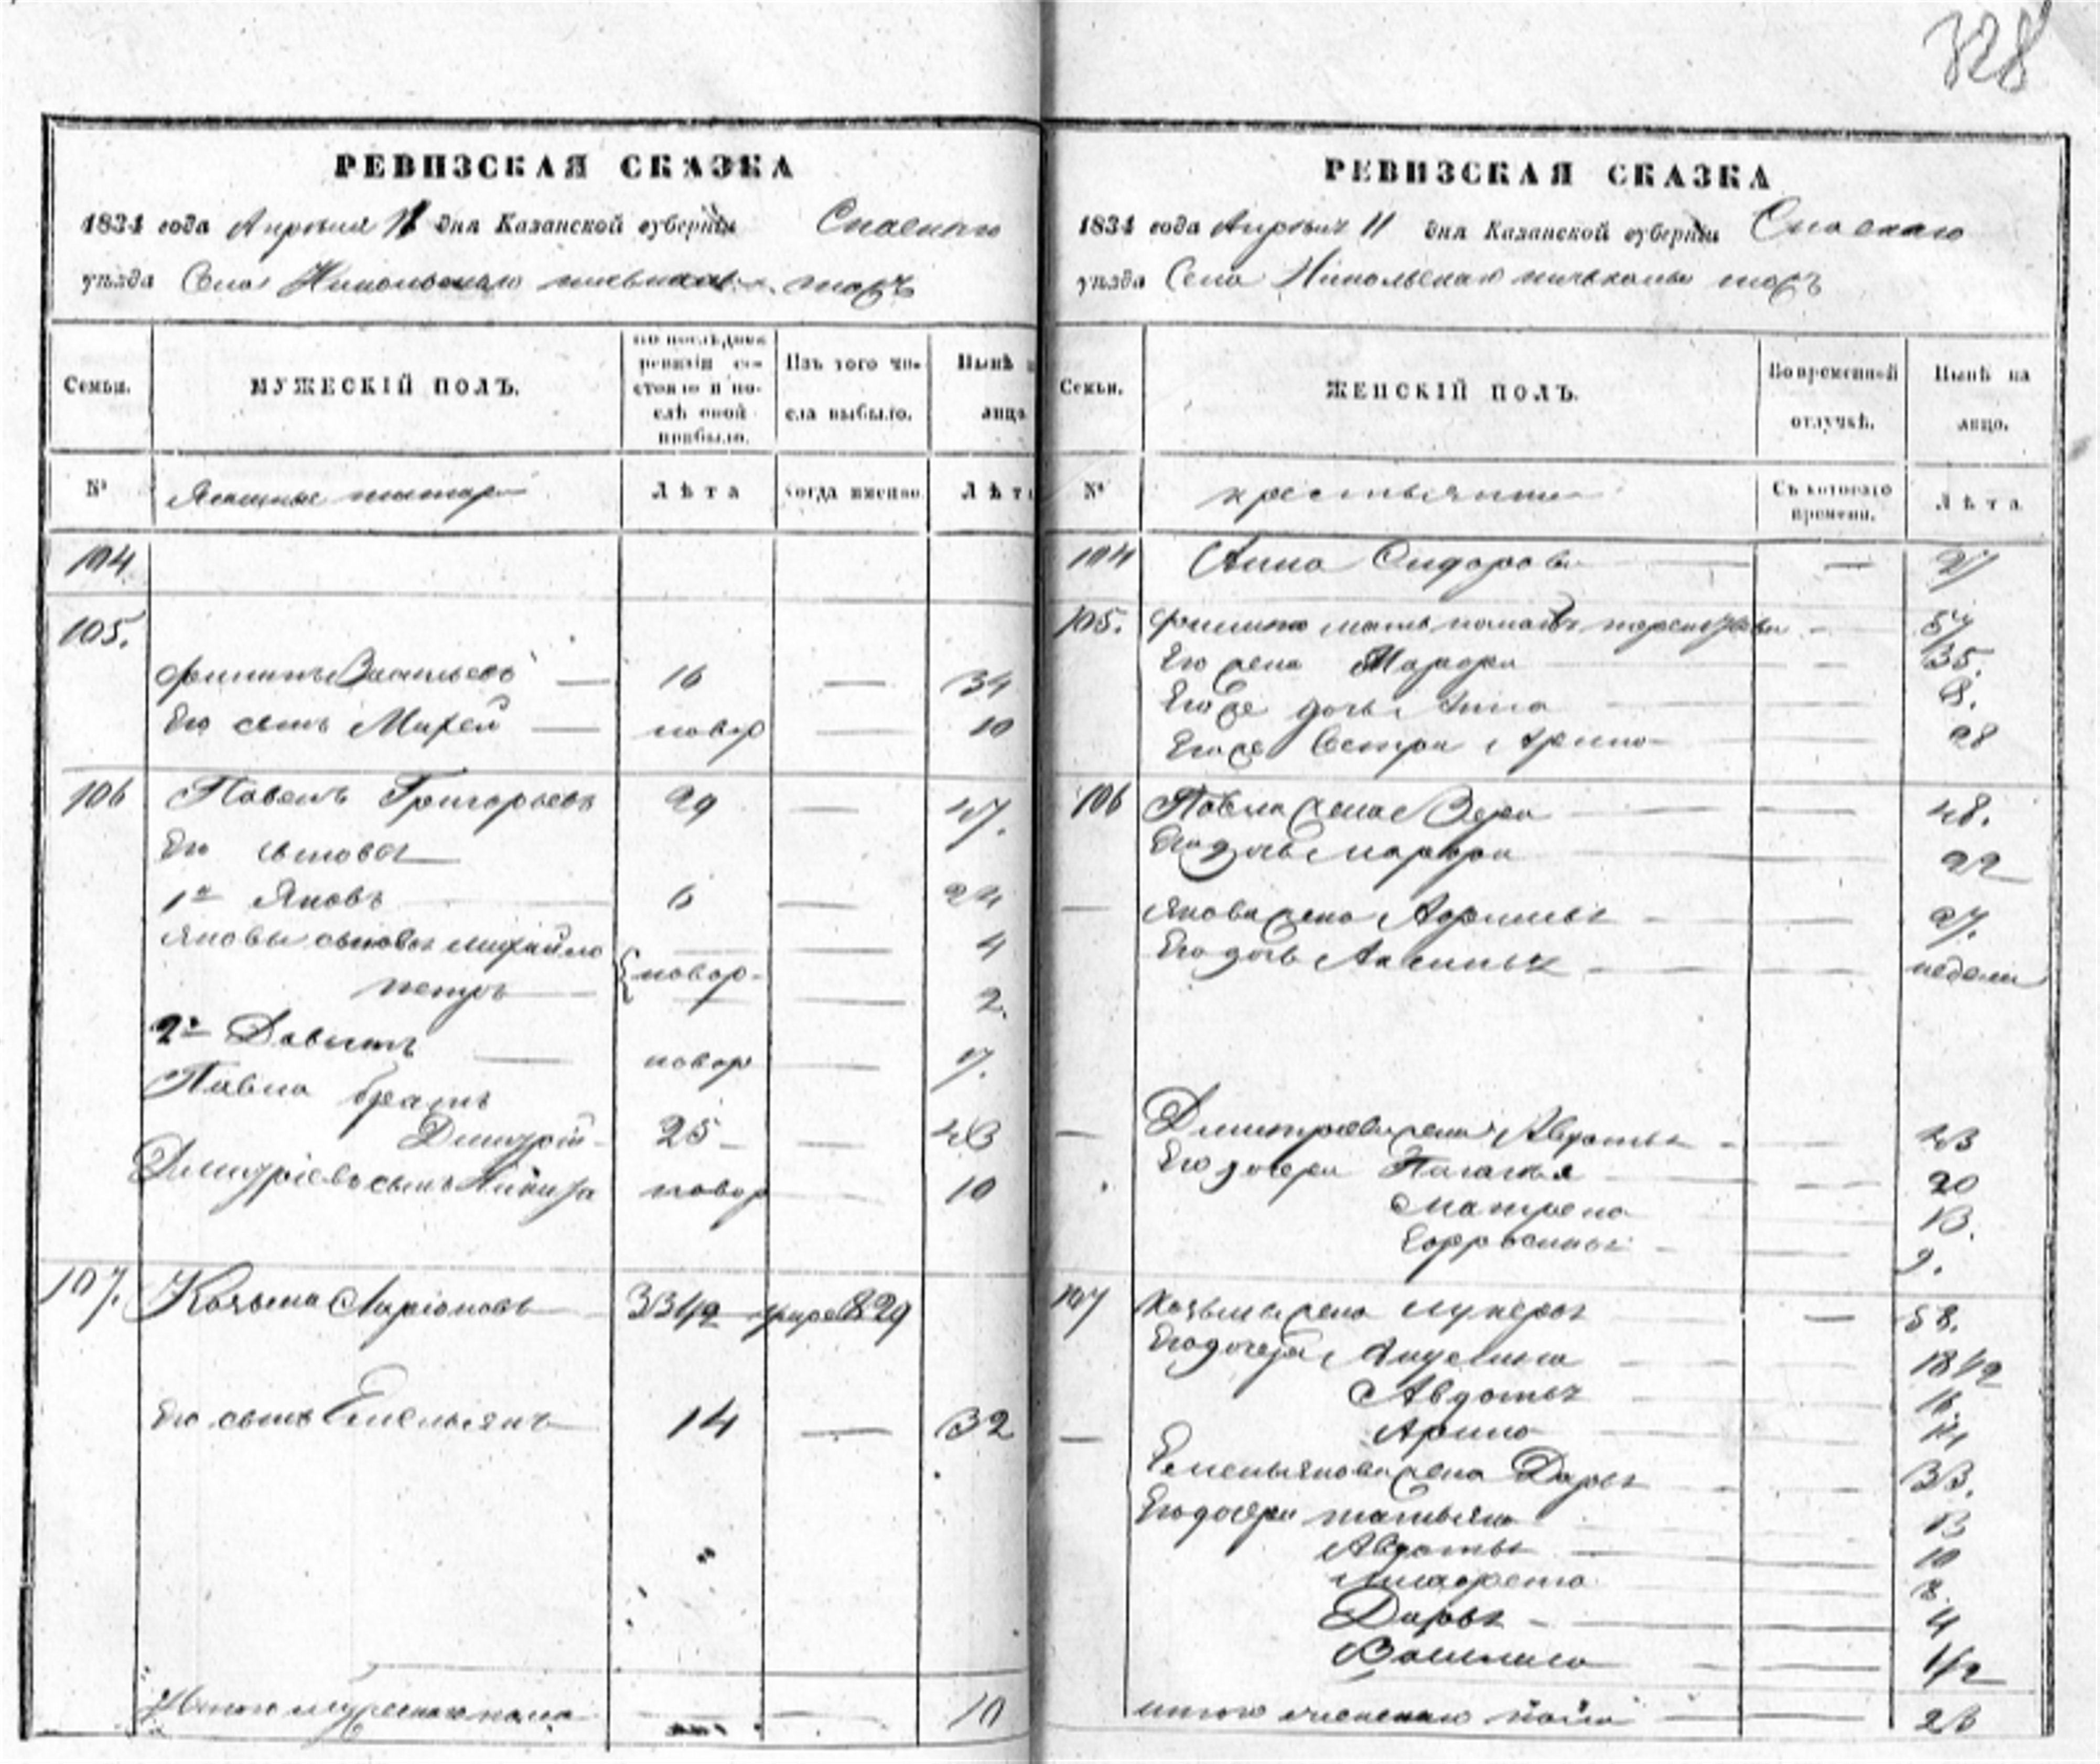 328
РЕВИЗСКАЯ СКАЗКА
1834 года Апреля 11 дня Казанской губерніи Спаскаго
уѣзда Села Никольскаго тожъ
Семьи.
МУЖЕСКІЙ ПОЛЪ.
По послѣдней ревизіи состояло и послѣ оной прибыло.
Изъ того числа выбыло.
Нынѣ на лицо
№
Ясашные
Лѣта
Когда именно.
Лѣта
104
105.
Филипъ Васильевъ 16 — 34
Его сынъ Мирей новор — 10
106 Павелъ Григорьевъ 29 — 47.
Его сыновья
1й Яковъ 6 — 24
Якова сыновья Михайло — 4
новор-
петръ — 2.
2й Давыдъ новор — 7.
Павла братъ
Дмитрій 25 — 43
Дмитріевъ сынъ Никита новор — 10
107. Козьма Ларіоновъ 33 1/2 829
Его сынъ Емельянъ 14 — 32
Итого мужескаго пола — — 10
РЕВИЗСКАЯ СКАЗКА
1834 года Апреля 11 дня Казанской губерніи Спаскаго
уѣзда Села Никольскаго тожъ
Семьи.
ЖЕНСКІЙ ПОЛЪ.
Во временной отлучкѣ.
Нынѣ на лицо.
№
крестьяни
Съ котораго времени.
Лѣта
104 Анна Сидорова — 27
105. Филипа мать 57
Его жена Марфа — 35.
Его же дочь Анна — 8.
Его же Сестра Арина — 28
106 Павла жена Вера — 48.
Его дочь Марфа — 22
— Якова жена — 27.
Его дочь — недели
— Дмитріева жена Авдотья — 43
Его дочери Пагалья — 20
Матрена — 13.
Ефросинья — 9.
107 Козьмы жена Лукерья — 58.
Его дочери Акулина — 18 1/2
Авдотья — 16
Арина — 14
— Емельянова жена Дарья — 33.
Его дочери татьяна — 13
Авдотья — 10
— 8.
Дарья — 4
Васи — 1/2
итого женскаго пола — 23